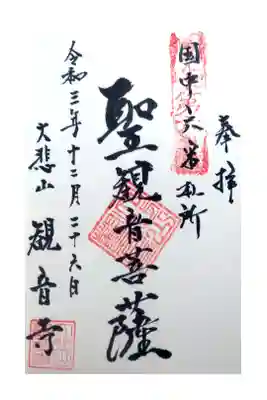 奉拝
国中六番札所
聖観音菩薩
令和三年十二月二十六日
大悲山
観音寺